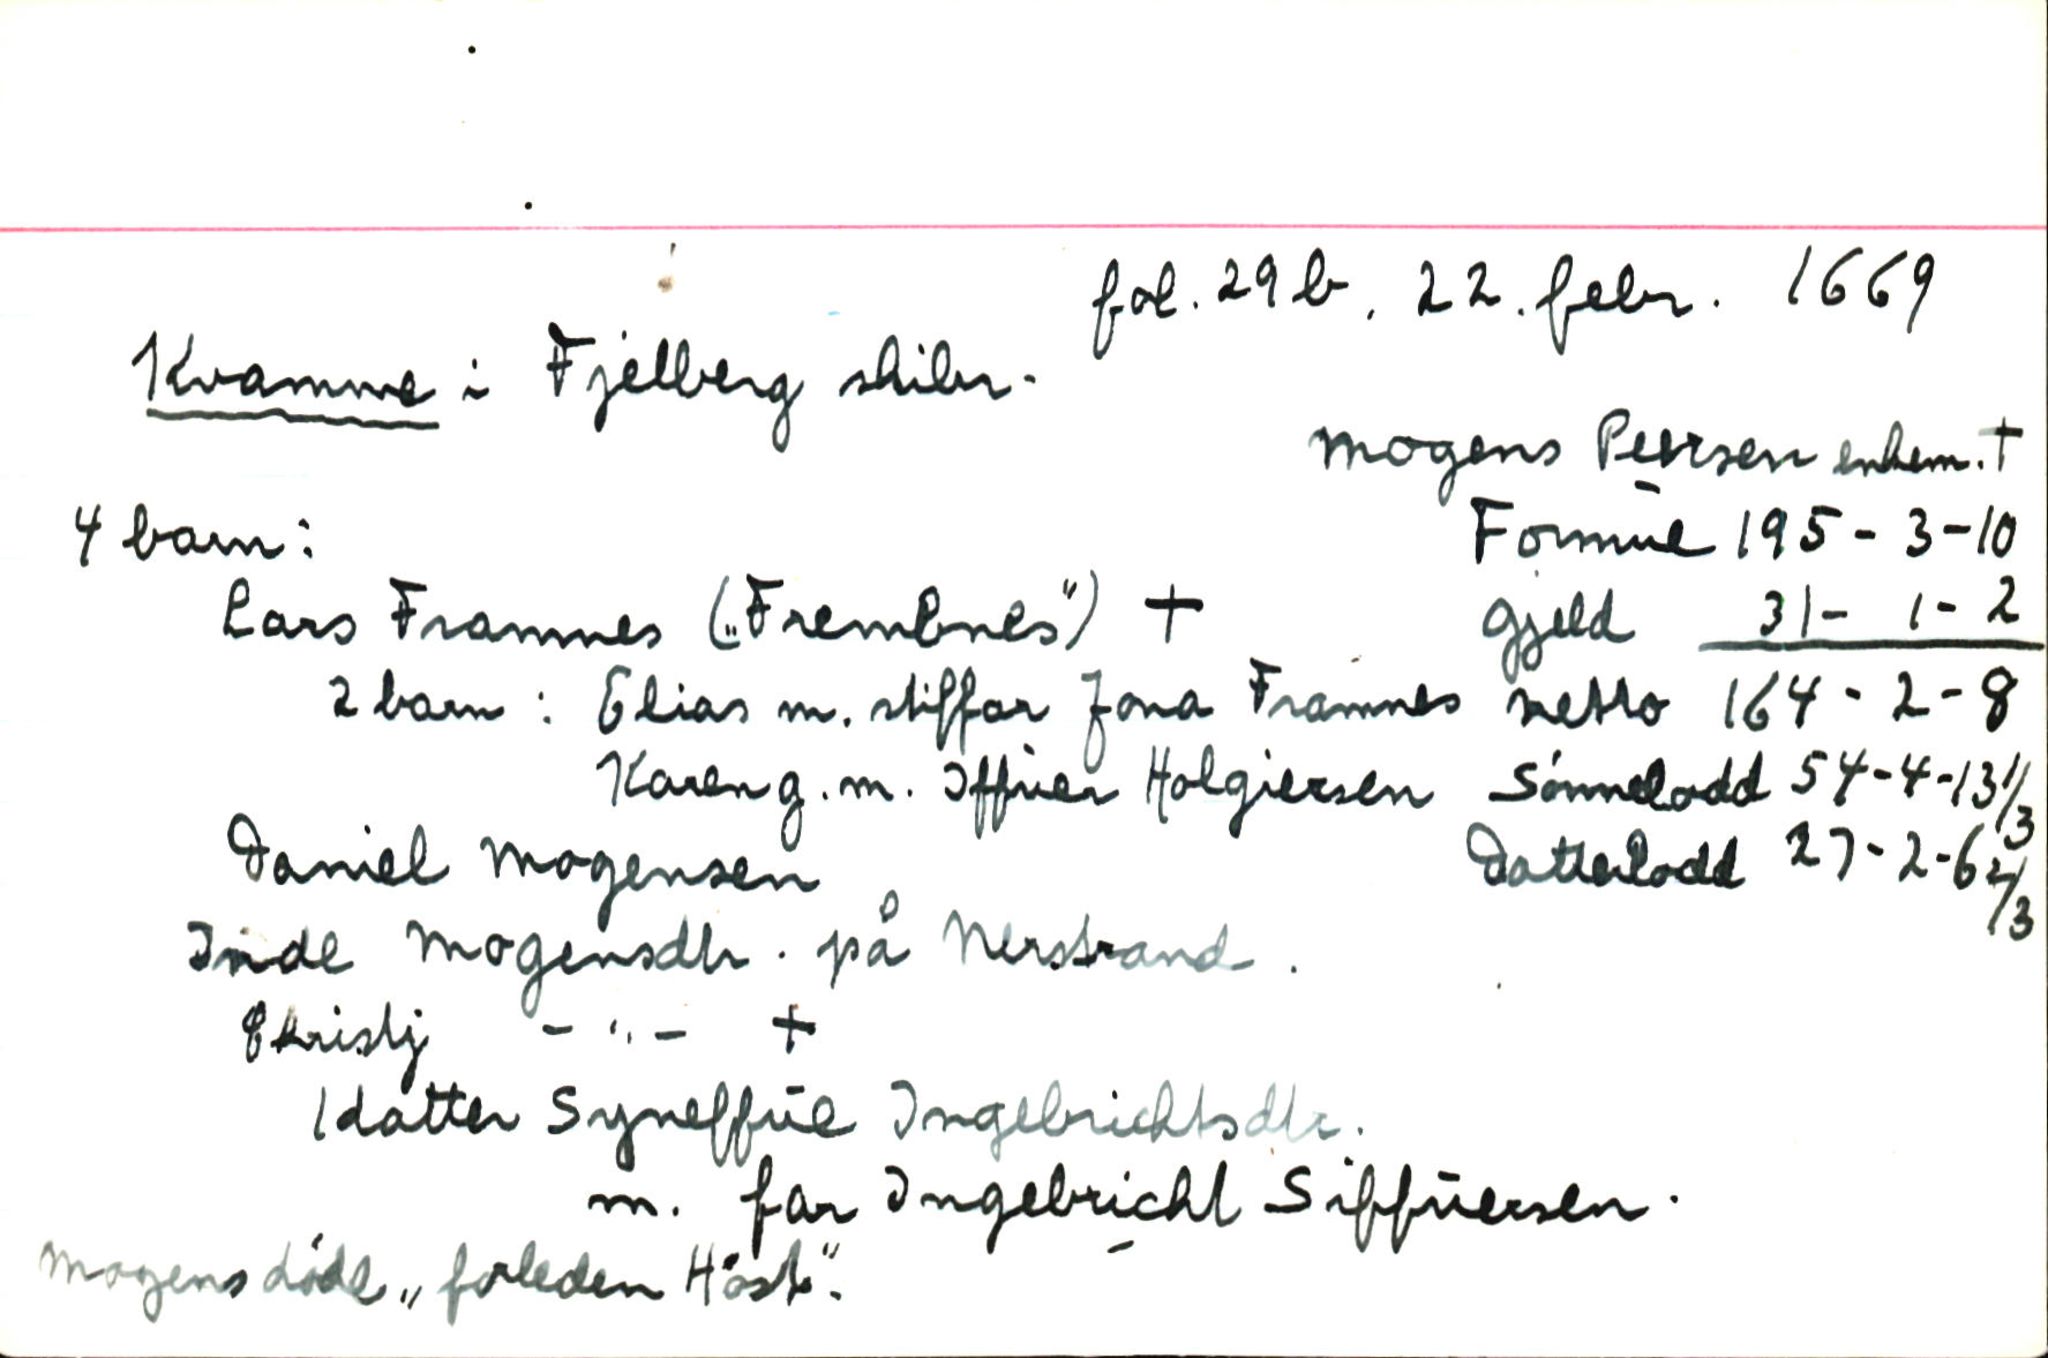 fol. 29 b, 22. febr. 1669
Kvamme i Fjelberg skibr.
Mogens Peersen enkem. †
4 barn: Formue 195 - 3 - 10
Lars Framnes („Frembnes") † Gjeld 31 - 1 - 2
2 barn: Elias m. stiffar Jona Framnes netto 164 - 2 - 8
Karen g. m. Iffuer Holgiersen Sønnelodd 54 - 4 - 13 1/3
Daniel Mogensen Datterlodd 27 - 2 - 6 2/3
Inde Mogensdtr. på Nerstrand.
Christj - " - †
1 datter Syneffue Ingebrichtsdtr.
m. far Ingebricht Siffuersen.
Mogens døde „forleden Høst".